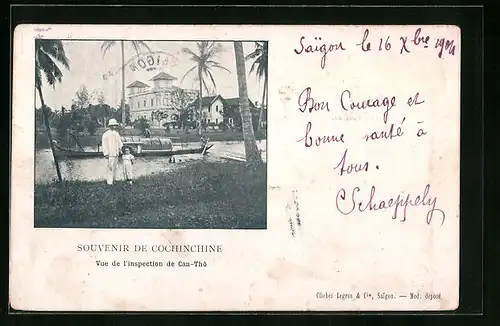 SAIGON
Saïgon le 16 Xbre 1904
Bon Courage et
bonne santé à
tous.
Schaeppely
SOUVENIR DE COCHINCHINE
Vue de l'inspection de Can-Thò
Clichés Legess & Cie, Saïgon. — Mod. déposé